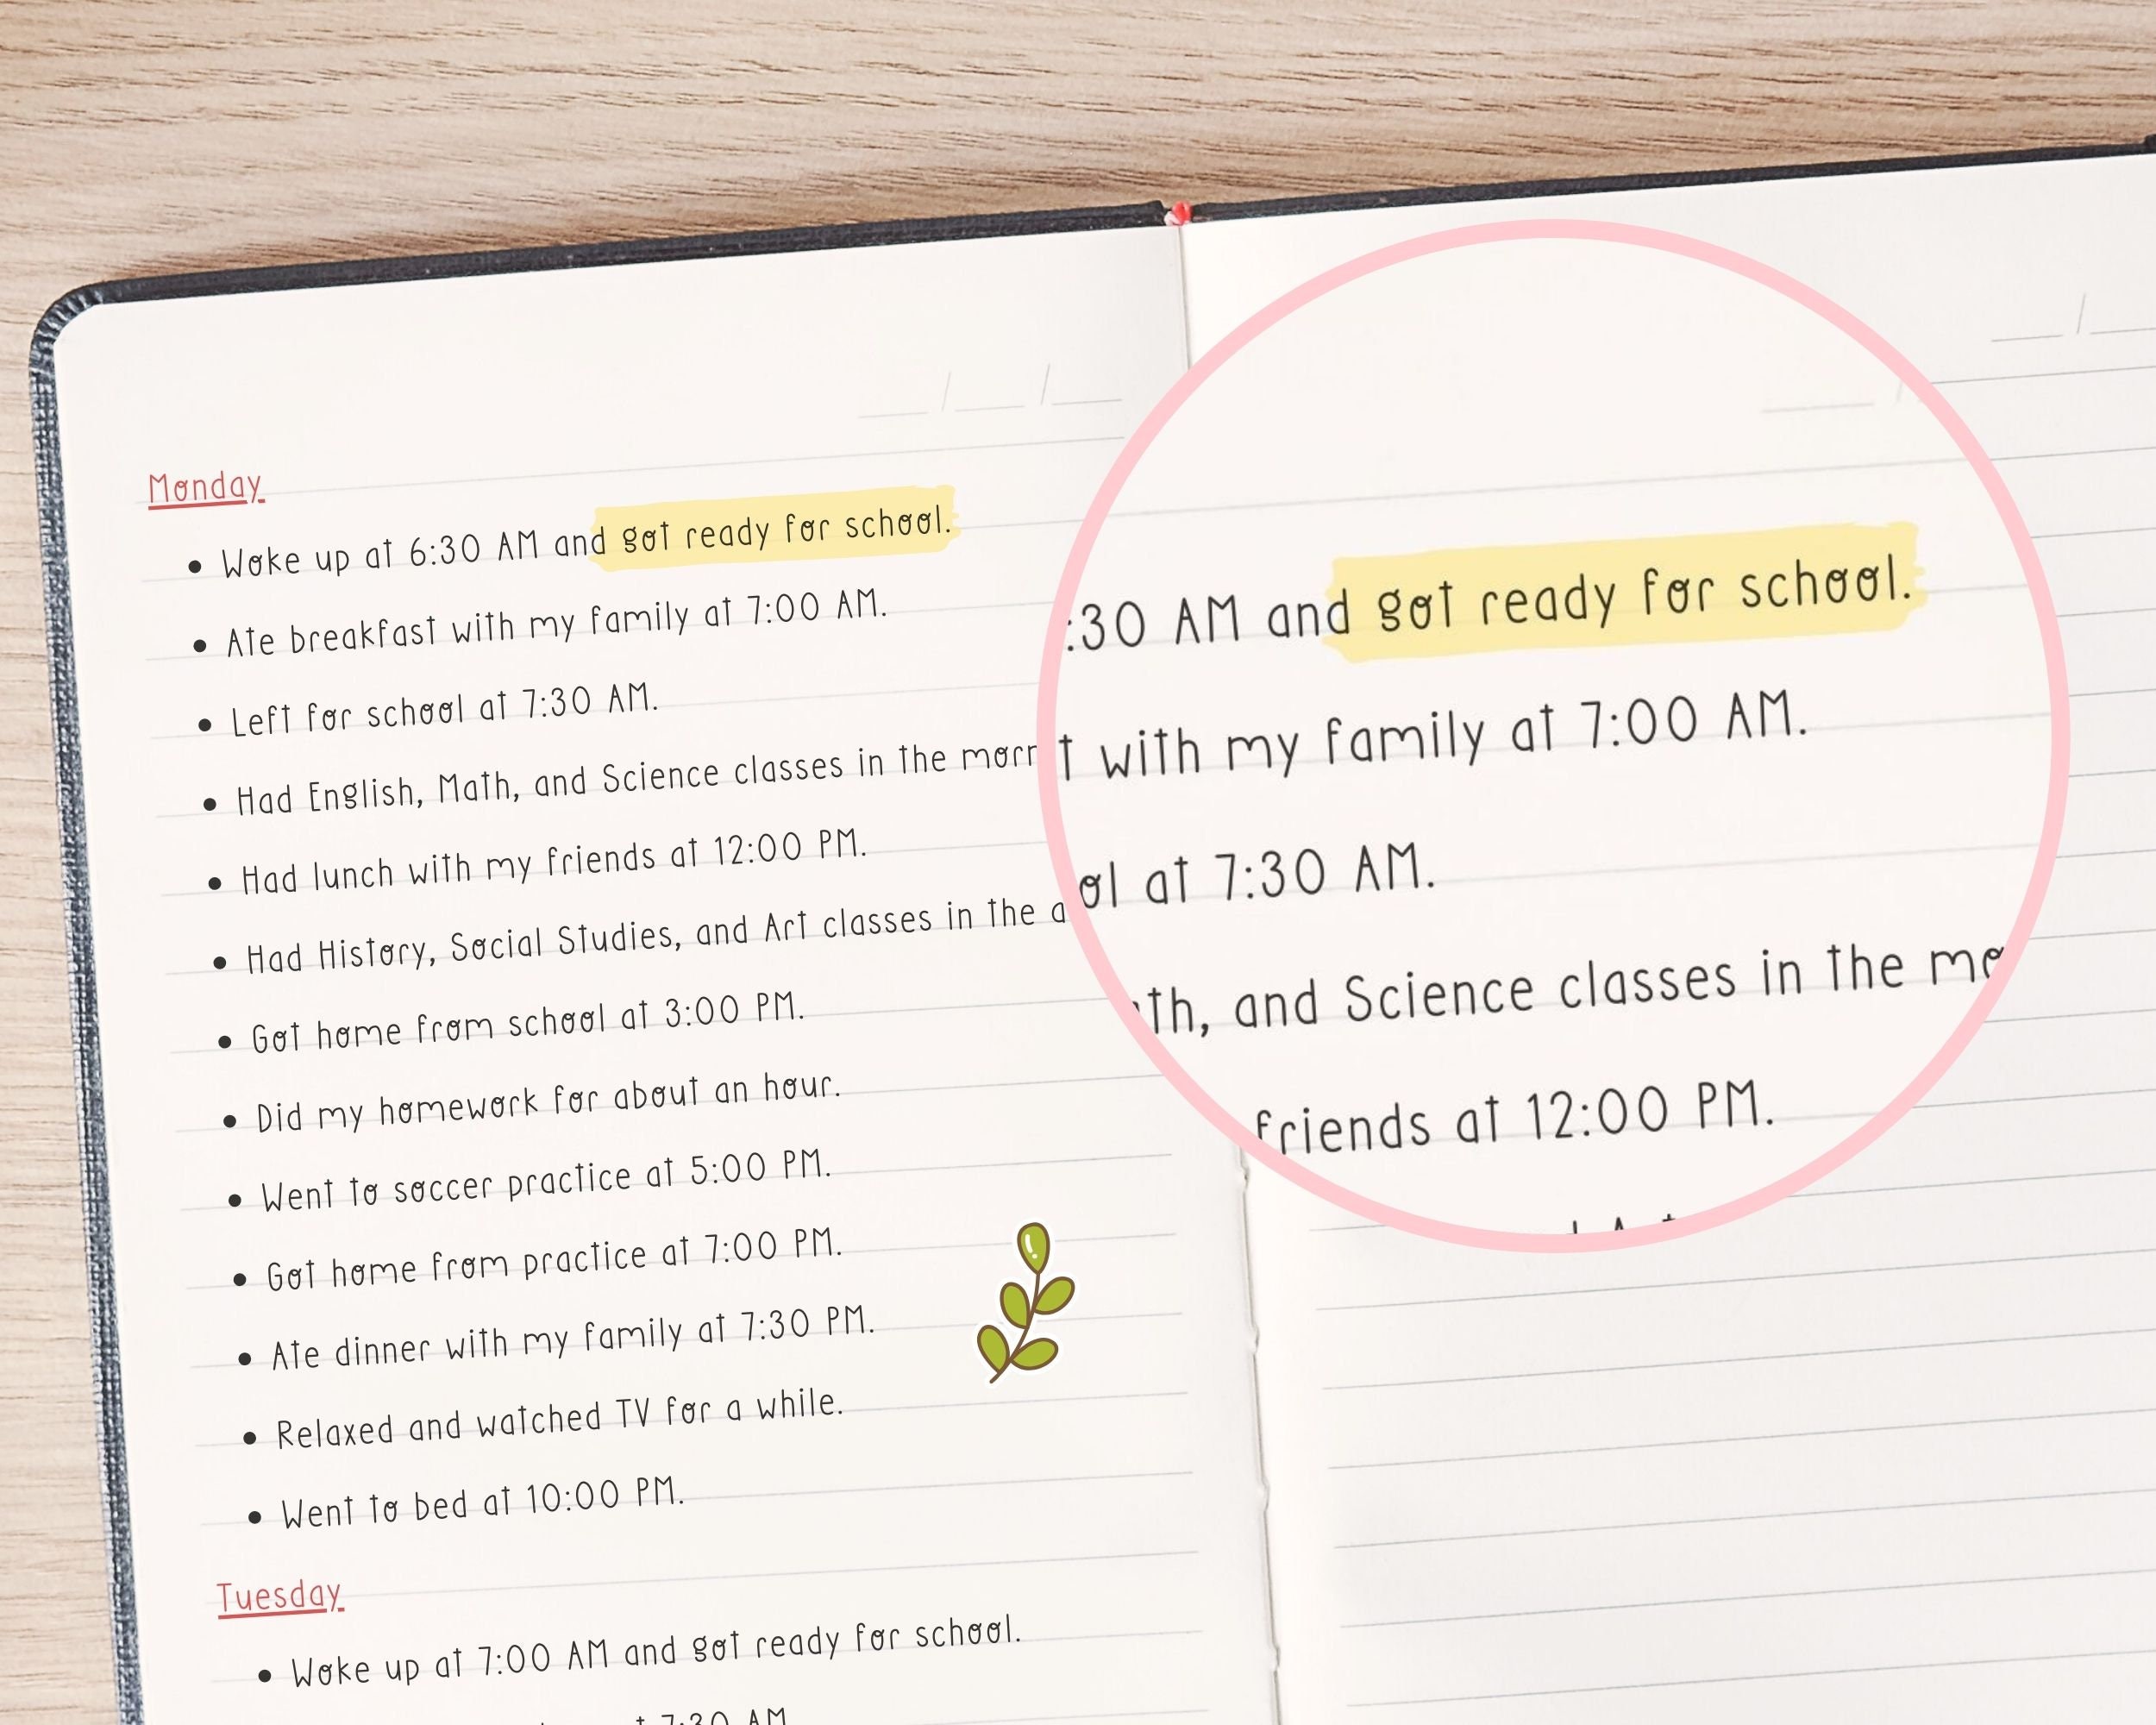 Monday
• Woke up at 6:30 AM and got ready for school.
• Ate breakfast with my family at 7:00 AM.
• Left for school at 7:30 AM.
• Had English, Math, and Science classes in the
• Had lunch with my friends at 12:00 PM.
• Had History, Social Studies, and Art classes in the
• Got home from school at 3:00 PM.
• Did my homework for about an hour.
• Went to soccer practice at 5:00 PM.
• Got home from practice at 7:00 PM.
• Ate dinner with my family at 7:30 PM.
• Relaxed and watched TV for a while.
• Went to bed at 10:00 PM.
Tuesday
• Woke up at 7:00 AM and got ready for school.
7:30 AM
:30 AM and got ready for school.
t with my family at 7:00 AM.
ol at 7:30 AM.
th, and Science classes in the mo
friends at 12:00 PM.